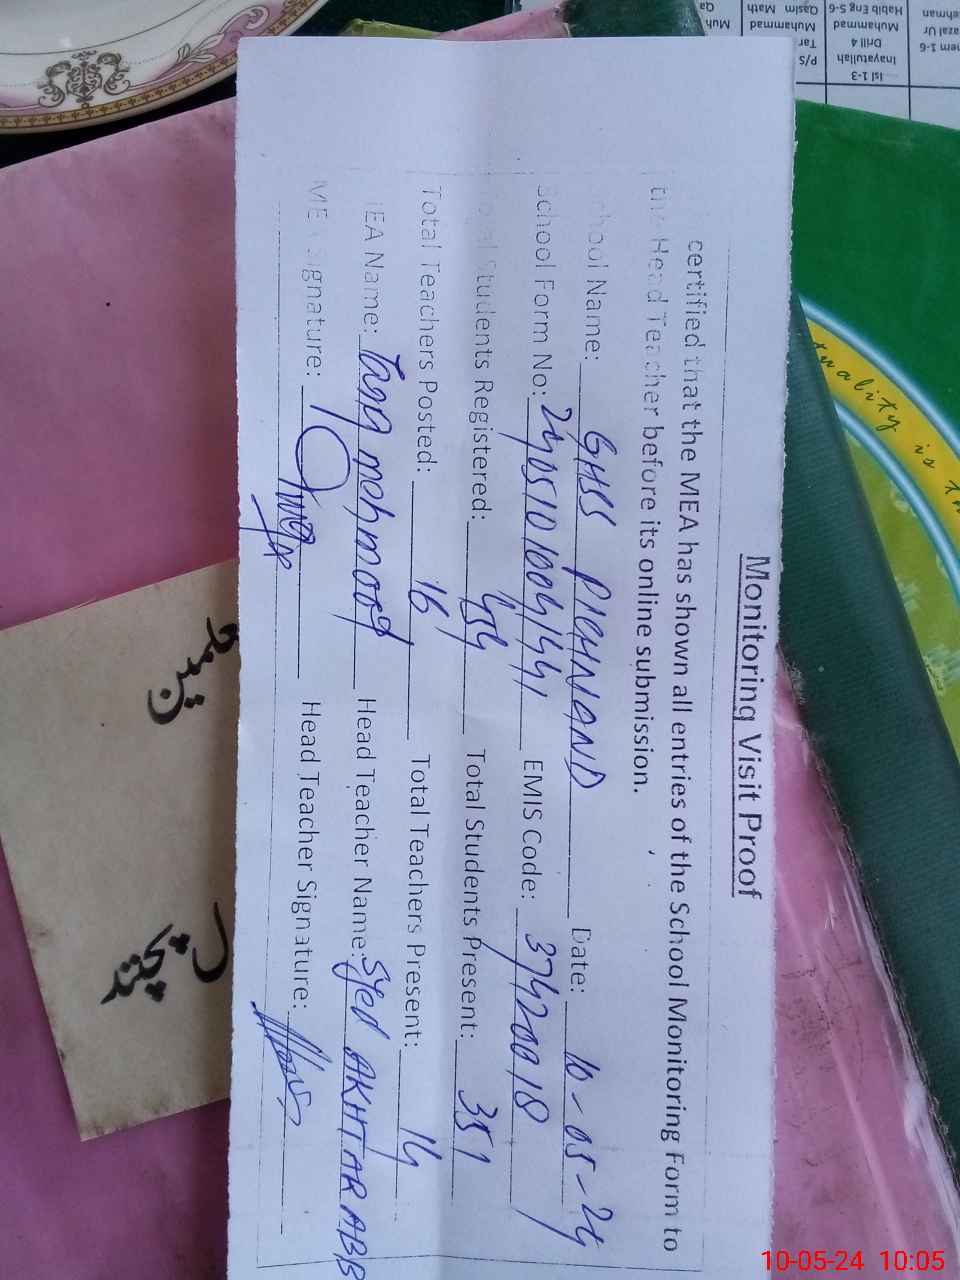 Monitoring Visit Proof
certified that the MEA has shown all entries of the School Monitoring Form to
the Head Teacher before its online submission.
School Name: GHSS PICHNAND Date: 10-05-24
School Form No: EMIS Code: 37420018
Total Students Registered: 454 Total Students Present: 351
Total Teachers Posted: 16 Total Teachers Present: 14
MEA Name: Tariq mehmood Head Teacher Name: Syed AKHTAR ABB
MEA Signature: Head Teacher Signature:
Isl 1-3
Inayatullah
Drill 4
Muhammad
Habib Eng 5-6
P/S
Tar
Muhammad
Qasim Math
علمین
پچنند
10-05-24 10:05